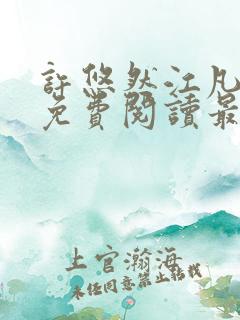 許悠然江凡
免費閱讀最
上官瀚海
未经同意禁止转载